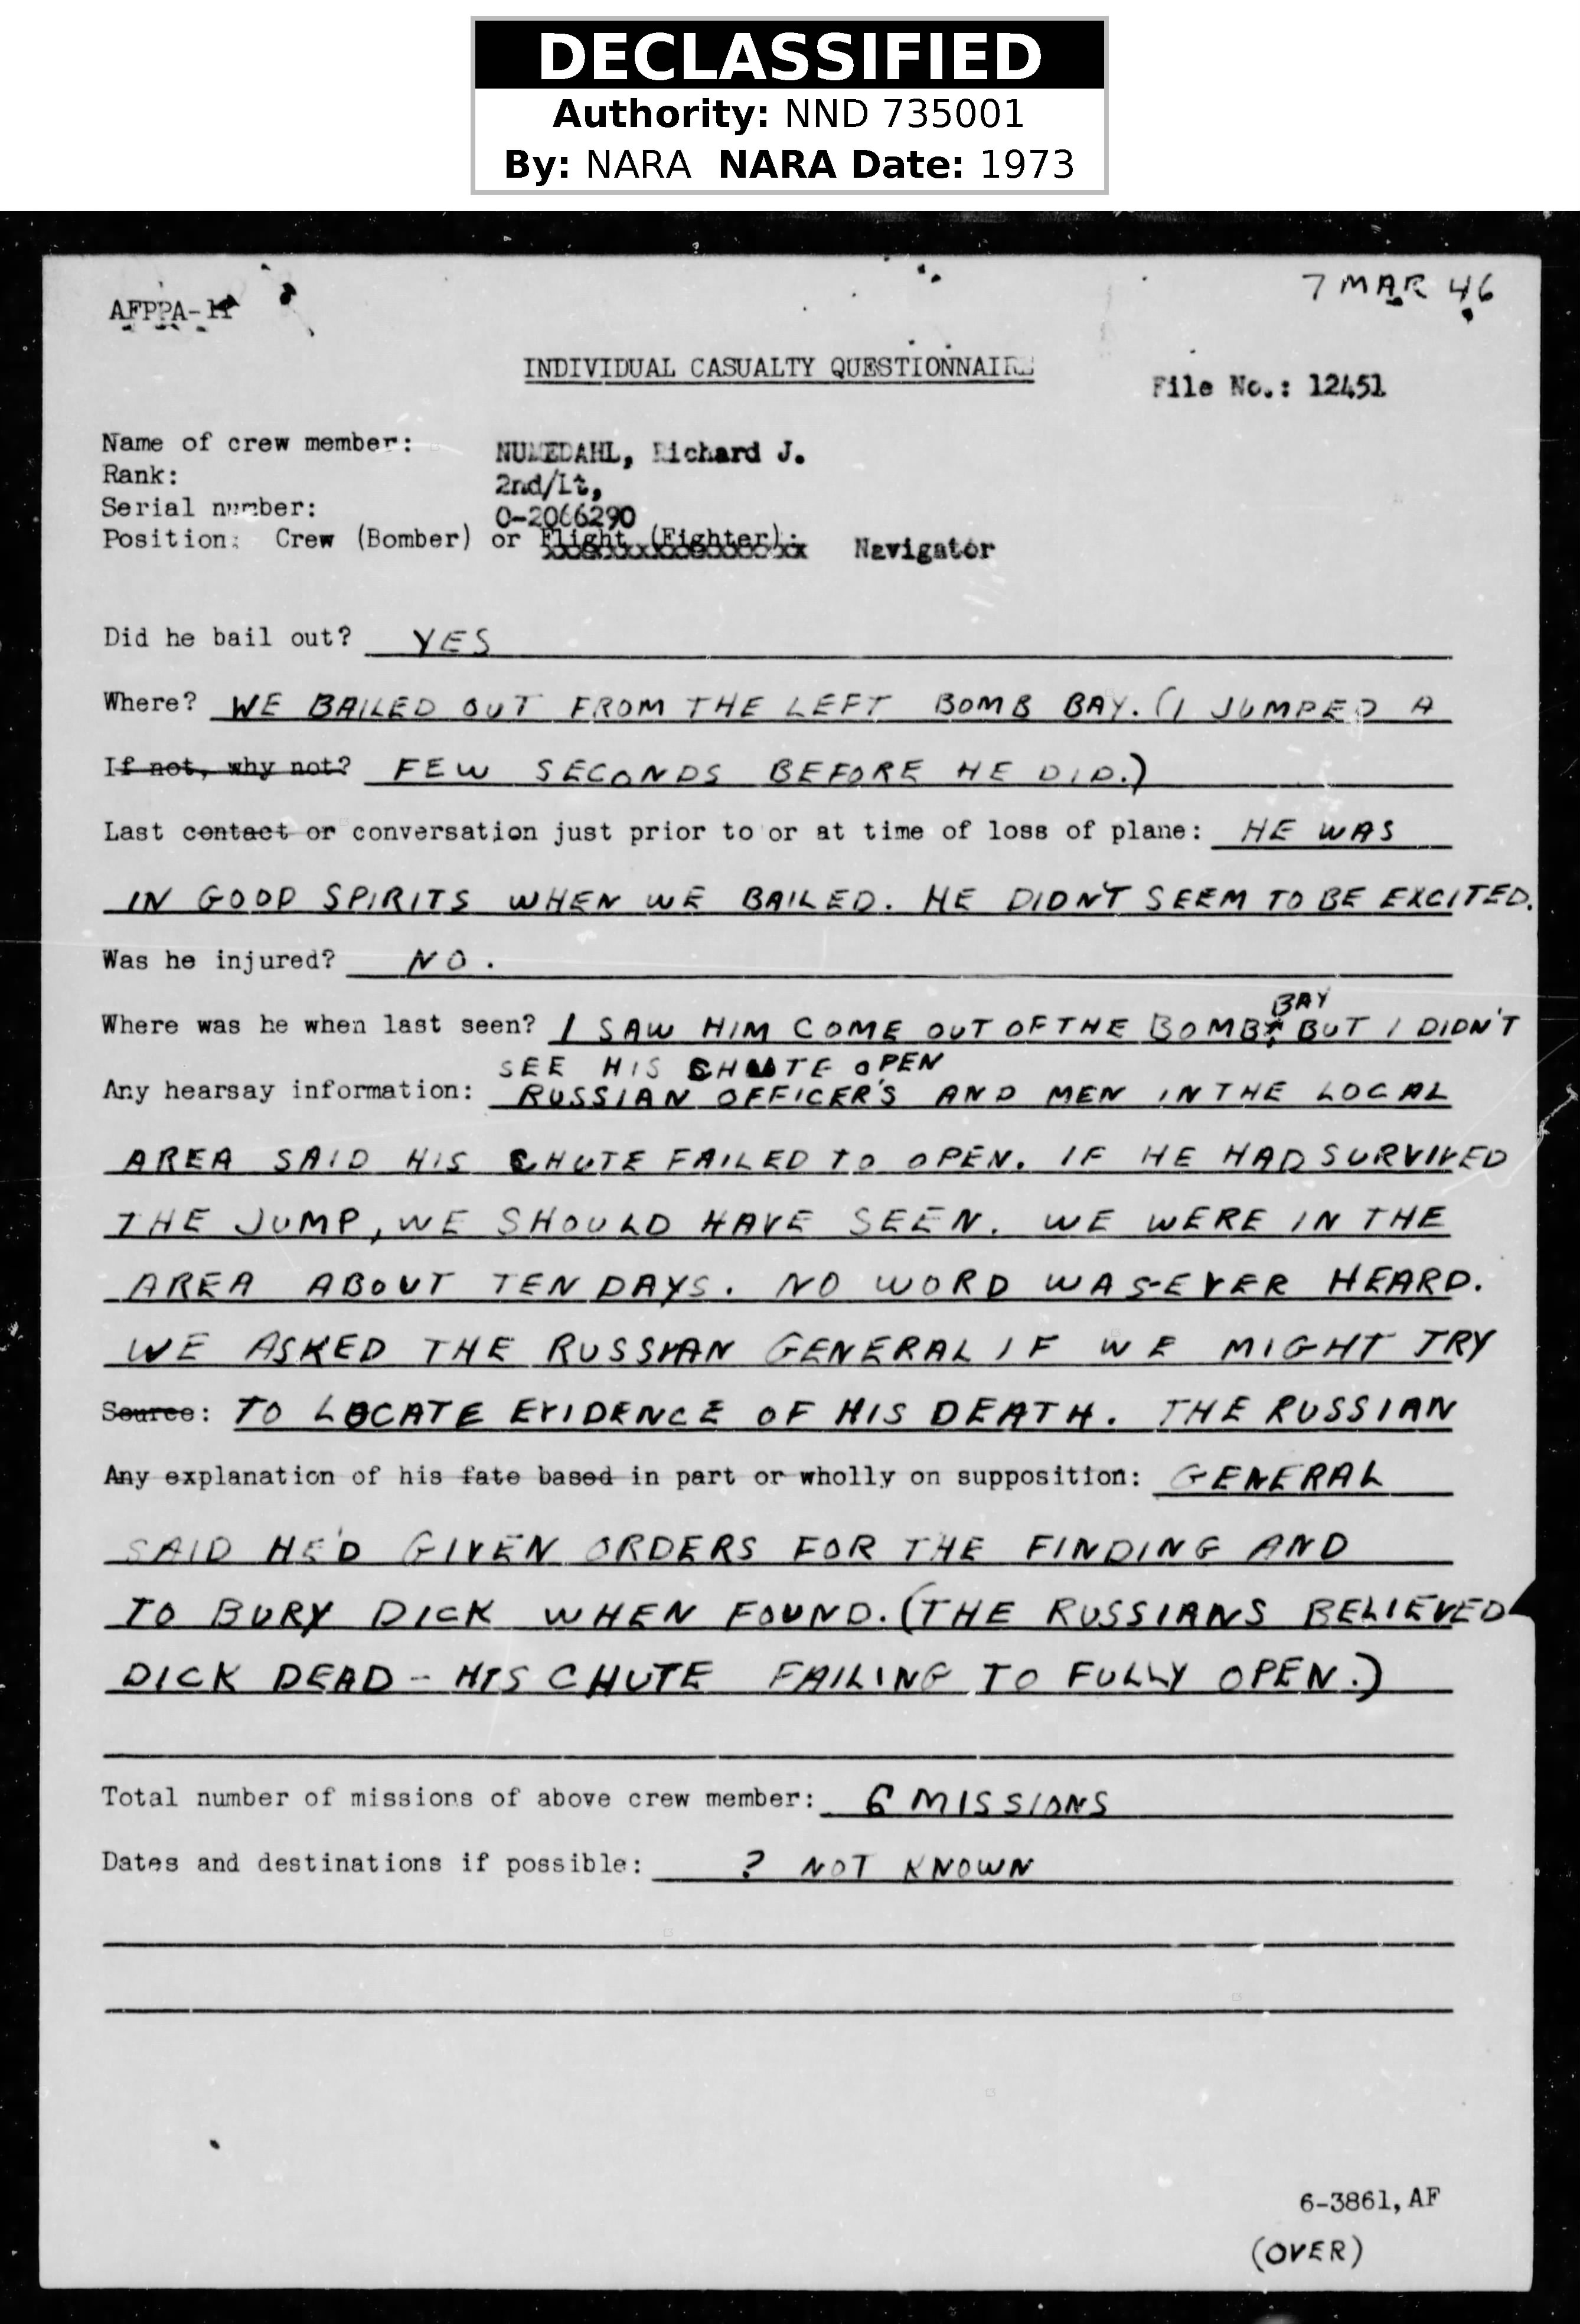 DECLASSIFIED
Authority: NND 735001
By: NARA NARA Date: 1973
7 MAR 46
AFPPA-11
INDIVIDUAL CASUALTY QUESTIONNAIRE
File No.: 12451
Name of crew member: Richard J.
Rank: 2nd/Lt,
Serial number: O-2066290
Position: Crew (Bomber) or Flight (Fighter): Navigator
Did he bail out? YES
Where? WE BAILED OUT FROM THE LEFT BOMB BAY. (I JUMPED A
If not, why not? FEW SECONDS BEFORE HE DID.)
Last contact or conversation just prior to or at time of loss of plane: HE WAS
IN GOOD SPIRITS WHEN WE BAILED. HE DIDN'T SEEM TO BE EXCITED.
Was he injured? NO.
BAY
Where was he when last seen? I SAW HIM COME OUT OF THE BOMB BUT I DIDN'T
SEE HIS CHUTE OPEN
Any hearsay information: RUSSIAN OFFICER'S AND MEN IN THE LOCAL
AREA SAID HIS CHUTE FAILED TO OPEN. IF HE HAD SURVIVED
THE JUMP, WE SHOULD HAVE SEEN. WE WERE IN THE
AREA ABOUT TEN DAYS. NO WORD WAS EVER HEARD.
WE ASKED THE RUSSIAN GENERAL IF WE MIGHT TRY
Source: TO LOCATE EVIDENCE OF HIS DEATH. THE RUSSIAN
Any explanation of his fate based in part or wholly on supposition: GENERAL
SAID HE'D GIVEN ORDERS FOR THE FINDING AND
TO BURY DICK WHEN FOUND. (THE RUSSIANS BELIEVED
DICK DEAD - HIS CHUTE FAILING TO FULLY OPEN.)
Total number of missions of above crew member: 6 MISSIONS
Dates and destinations if possible: ? NOT KNOWN
6-3861, AF
(OVER)